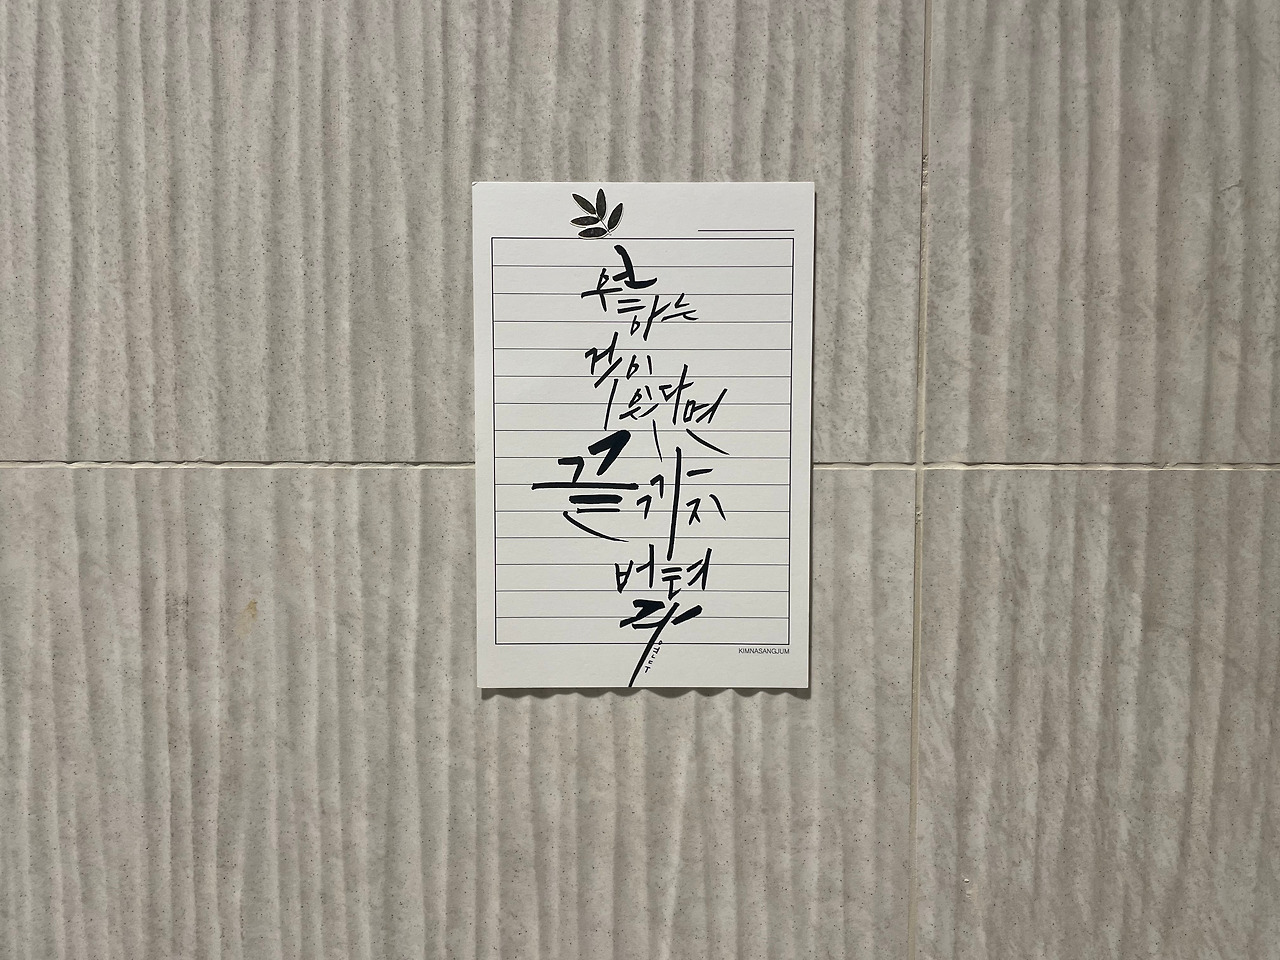 원하는
것이
있다면
끝까지
버텨
라
KIMNASANGJUM